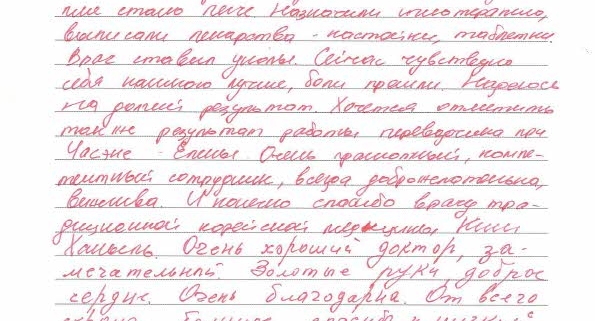 мне стало легче. Назначили иглотерапию,
выписали лекарства - настойки, таблетки
Врач ставил уколы. Сейчас чувствую
себя намного лучше, боли прошли. Надеюсь
на долгий результат. Хочется отметить
также результат работы переводчика при
Часэне - Елены. Очень грамотный, компе-
тентный сотрудник, всегда доброжелательна,
вежлива. И конечно спасибо врачу тра-
диционной корейской медицины Ким
Ханыль. Очень хороший доктор, за-
мечательный. Золотые руки, доброе
сердце. Очень благодарна. От всего